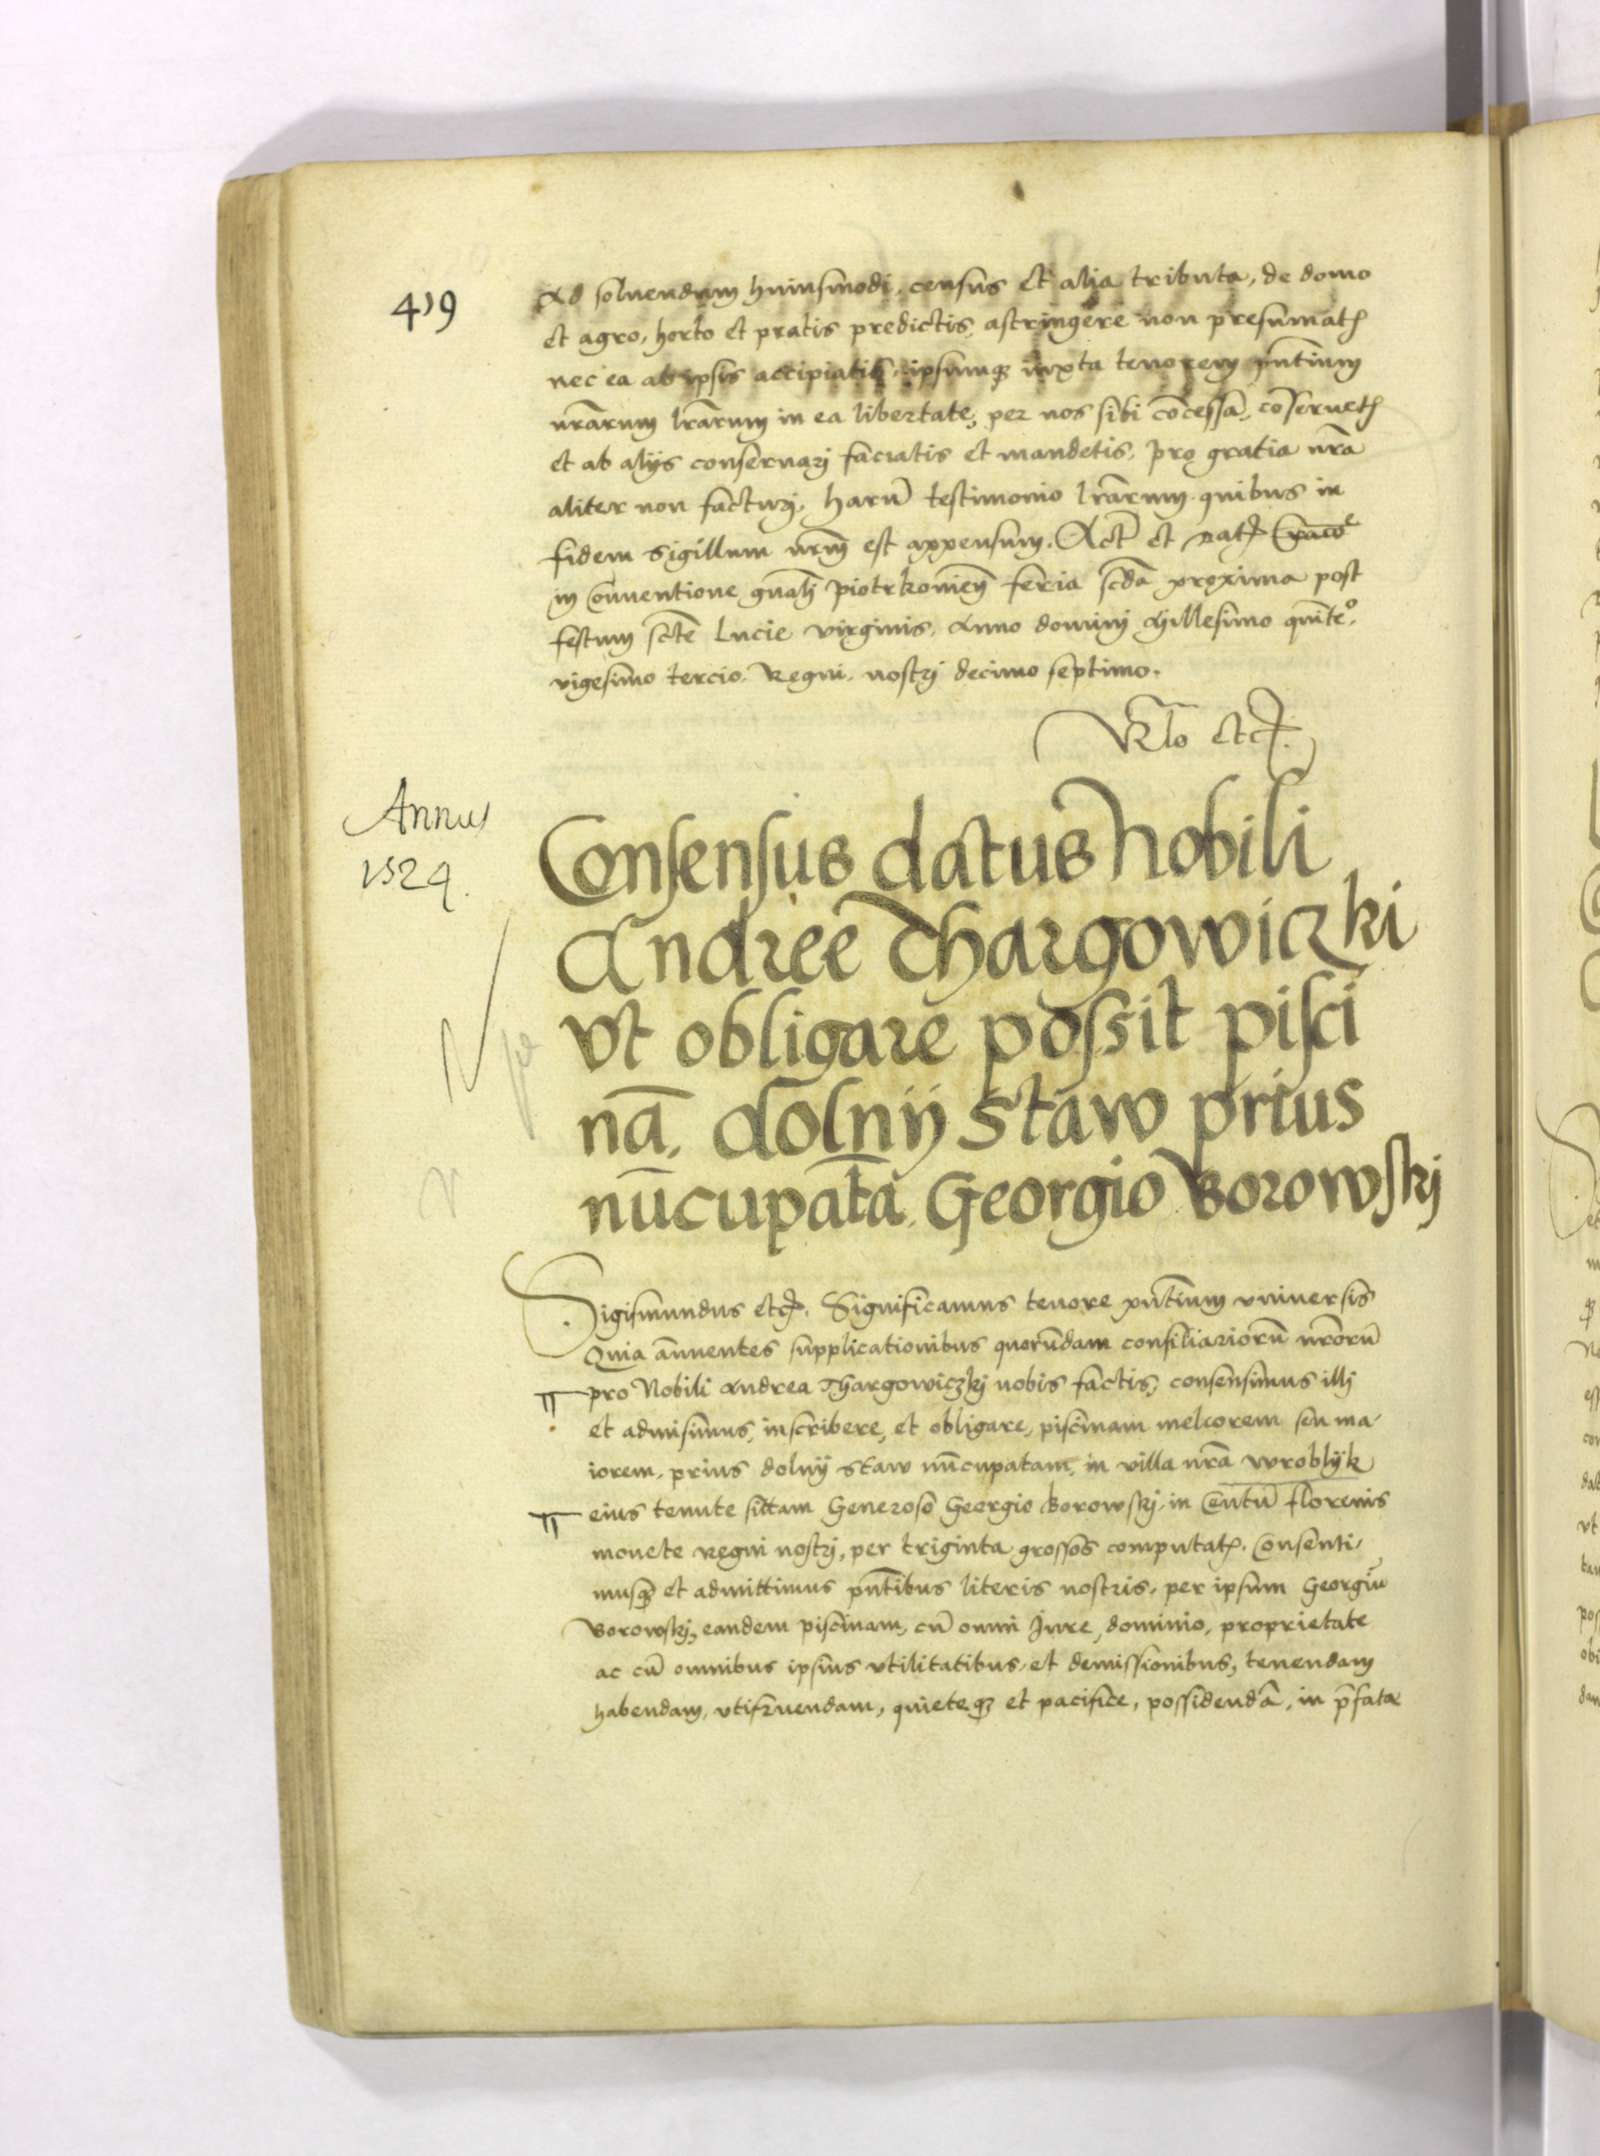 419
Ad soluendum huiusmodi, census et alia tributa, de domo
et agro, horto et pratis predictis, astringere non presumat~
nec ea ab ipsis accipiatis, ipsumqz iuxta tenorem pn̄tium
nr̄arum lr̄arum in ea libertate, per nos sibi cōcessa, cōseruet~
et ab alijs conseruarj faciatis et mandetis, pro gratia nr̄a
aliter non facturj, harū testimonio lr̄arum quibus in
fidem sigillum nrm̄ est appensum. Act~ et Dat~
in Conuentione gn̄alj Piotrkouien̄ feria scd̄a proxima post
festum scte̅ Lucie virginis, Anno dominj Millesimo quīte°.
vigesimo tercio. Regni. nostrj decimo septimo.
Rl̄o etc~.
Annus
1524.
Consensus datus Nobili
Andree Thargowiczki
vt obligare possit pisci
nā, dolnij staw prius
nūcupatā Georgio Borowskj
Sigismundus etc~. Significamus tenore pn̄tium vniuersis
Quia annuentes supplicationibus quorundam consiliariorū nr̄orū
pro Nobili Andrea Thargowiczkj nobis factis, consensimus illj
et admisimus, inscribere, et obligare, piscinam meliorem seu ma-
iorem, prius dolnij staw nūcupatam, in villa nr̄a wroblijk
eius tenute sittam Generoso Georgio Borowskj, in Centū florenis
monete Regni nostrj, per triginta grossos computat~. Consenti-
musqz et admittimus pn̄tibus literis nostris, per ipsum Georgiū
Borowskj, eandem piscinam, cū omni Jure, dominio, proprietate
ac cū omnibus ipsius vtilitatibus, et demissionibus, tenendam
habendam, vtifruendam, quieteqz et pacifice, possidendā, in p̄fata